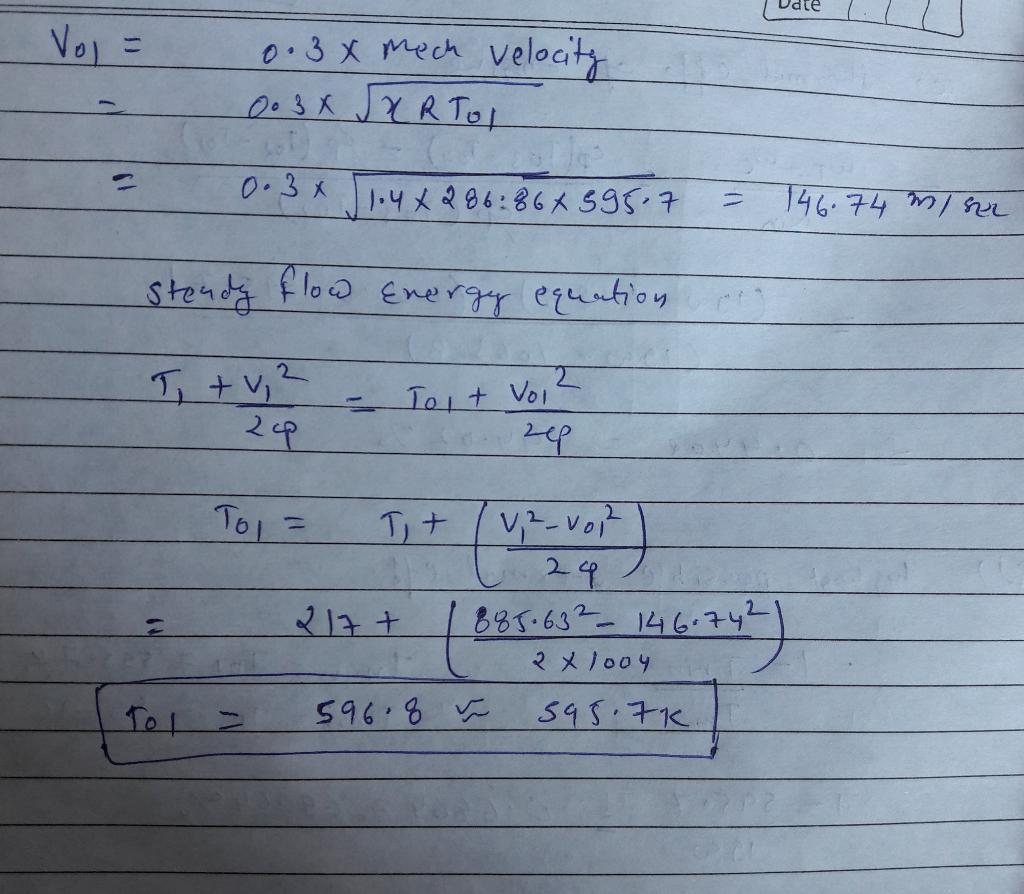 Date
V01 = 0.3 x Mech velocity
= 0.3 x √γ R T01
= 0.3 x √1.4 x 286.86 x 595.7 = 146.74 m/sec
steady flow energy equation
T1 + V1²/2cp = T01 + V01²/2cp
T01 = T1 + (V1² - V01²/2cp)
= 217 + (885.63² - 146.74²/2 x 1004)
T01 = 596.8 ≈ 595.7K